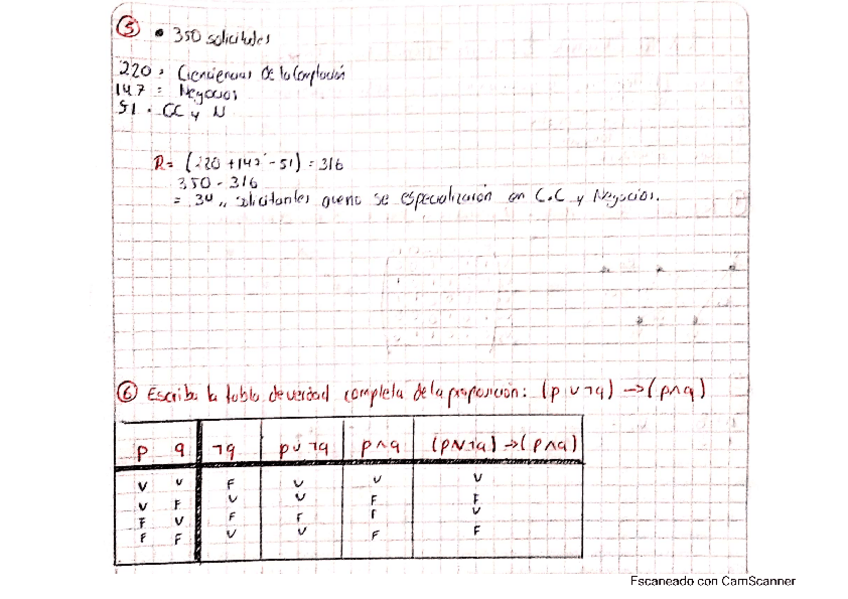 5 • 350 solicitudes
220 = Ciencias de la Computación
147 = Negocios
51 = CC y N
R = (220 + 147 - 51) = 316
350 - 316
= 34 ,, solicitantes que no se especializarón en C.C y Negocios.
6 Escriba la tabla de verdad completa de la proposición: (p ∪ ¬q) → (p ∧ q)
p q ¬q p ∪ ¬q p ∧ q (p ∪ ¬q) → (p ∧ q)
V V F V V V
V F V V F F
F V F F F V
F F V V F F
Escaneado con CamScanner